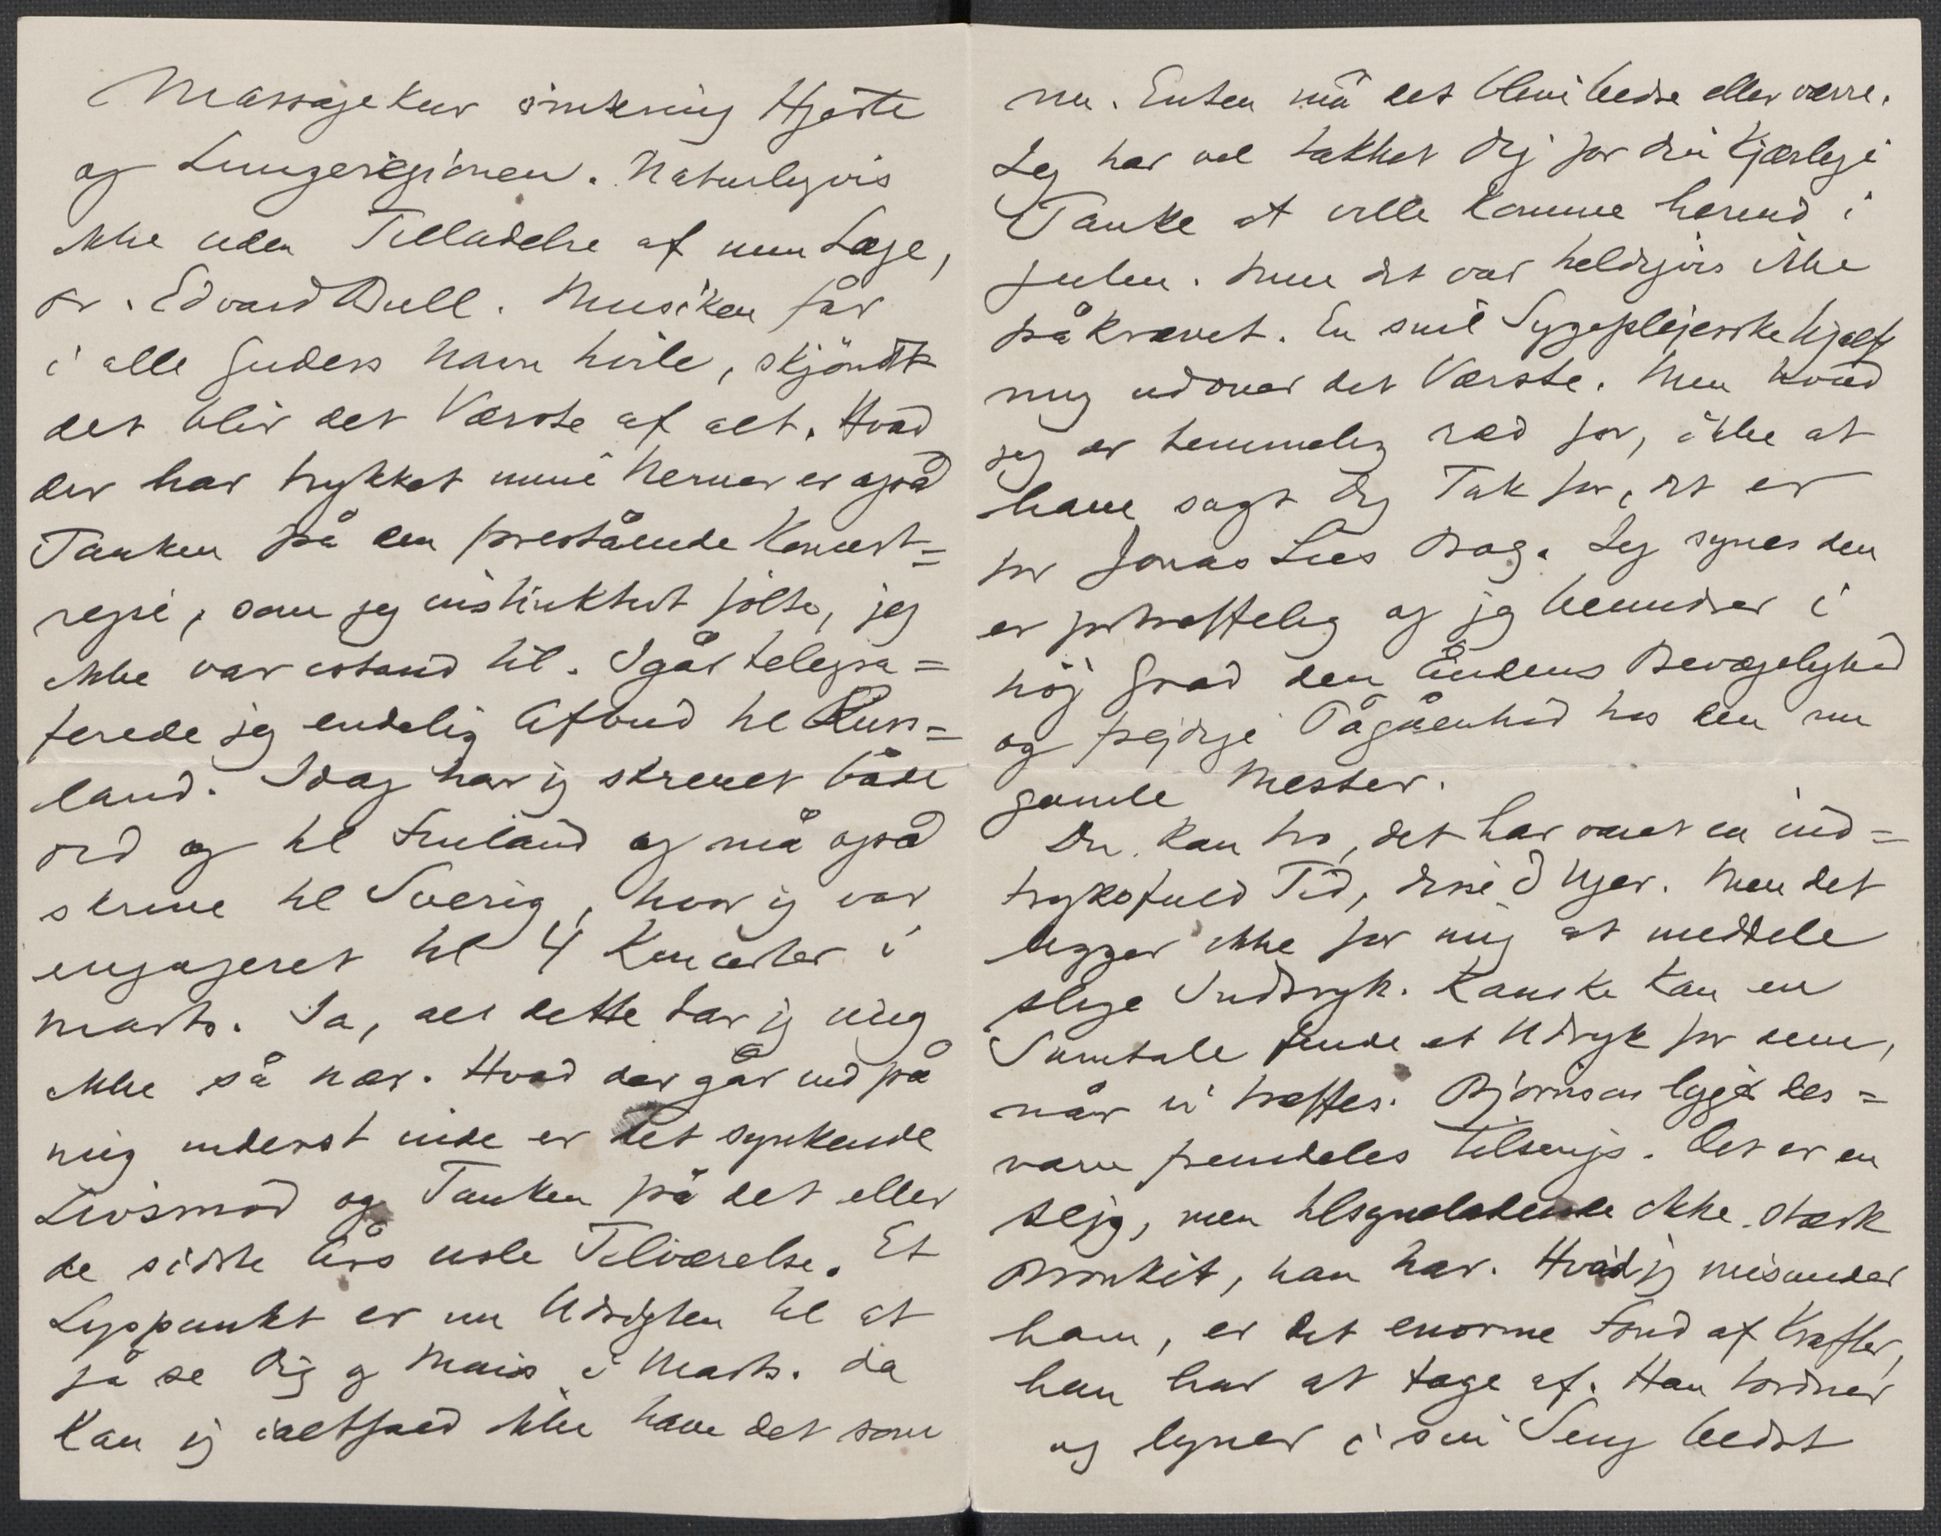 Massagekur omkring Hjerte
og Lungeregionen. Naturligvis
ikke uden Tilladelse af min Læge,
Dr. Edvard Bull. Musiken får
i alle Guders Navn hvile, skjöndt
det blir det Værste af alt. Hvad
der har trykket mine Nerver er også
Tanken på den forestående Koncert=
rejse, som jeg instinktivt fölte, jeg
ikke var istand til. Igår telegra=
ferede jeg endelig Afbud til Russ=
land. Idag har jeg skrevet både
did og til Finland og må også
skrive til Sverig, hvor jeg var
engageret til 4 Koncerter i
Marts. Ja, alt dette tar jeg mig
ikke så nær. Hvad der går ind på
mig inderst inde er det synkende
Livsmod og Tanken på det eller
de sidste Års usle Tilværelse. Et
Lyspunkt er nu Udsigten til at
få se Dig og Mais i Marts. Da
kan jeg ialtfald ikke have det som
nu. Enten må det blive bedre eller værre.
Jeg har vel takket Dig for din kjærlige
Tanke at ville komme herind i
Julen. Men det var heldigvis ikke
påkrævet. En snil Sygeplejerske hjalp
mig udover det Værste. Men hvad
jeg er temmelig ræd for, ikke at
have sagt Dig Tak for, det er
for Jonas Lies Bog. Jeg synes den
er fortræffelig og jeg beundrer i
höj Grad den Åndens Bevægelighed
og frejdige Pågåenhed hos den nu
gamle Mester.
Du kan tro, det har været en ind=
tryksfuld Tid, disse Uger. Men det
ligger ikke for mig at meddele
slige Indtryk. Kanske kan en
Samtale finde et Udtryk for dem,
når vi træffes. Björnson ligger des=
værre fremdeles tilsengs. Det er en
sejg, men tilsyneladende ikke stærk
Bronkit, han har. Hvad jeg misunder
ham, er det enorme Fond af Kræfter,
han har at tage af. Han tordner
og lyner i sin Seng bedst